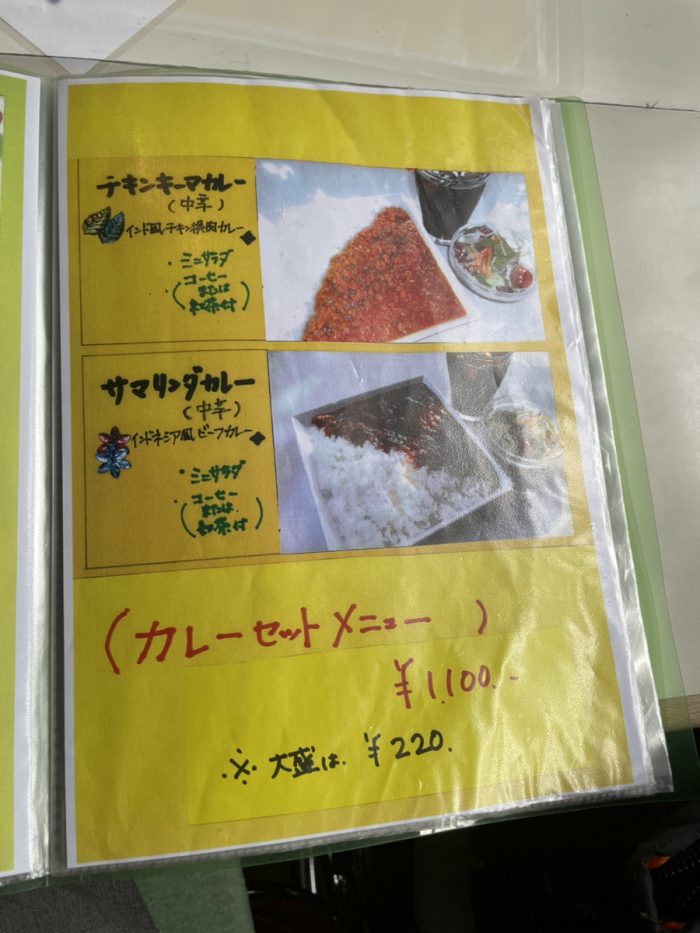 チキンキーマカレー
(中辛)
インド風チキン挽肉カレー◆
・ミニサラダ
(コーヒー
または
紅茶付)
サマリンダカレー
(中辛)
インドネシア風ビーフカレー◆
・ミニサラダ
・コーヒー
(または
紅茶付)
(カレーセットメニュー)
¥1,100.-
※大盛は、¥220.